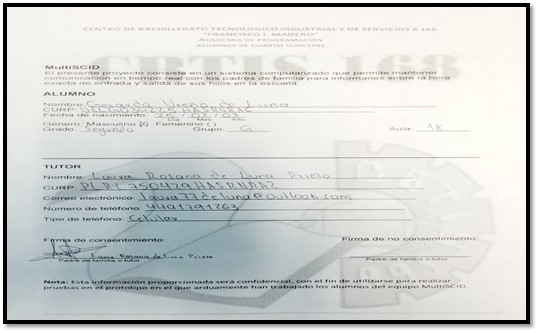 CENTRO DE BACHILLERATO TECNOLOGICO INDUSTRIAL Y DE SERVICIOS # 168
"FRANCISCO I. MADERO"
ACADEMIA DE PROGRAMACIÓN
ALUMNOS DE CUARTO SEMESTRE
MultiSCID
El presente proyecto consiste en un sistema computarizado que permite mantener
comunicación en tiempo real con los padres de familia para informarles sobre la hora
exacta de entrada y salida de sus hijos en la escuela.
ALUMNO
Nombre: Gerardo de Luna
CURP:
Fecha de nacimiento: 25/02/03
Día Mes Año
Género: Masculino (X) Femenino ( )
Grado: Segundo Grupo: G Aula: 18
TUTOR
Nombre: Laura Rosana de Luna Prieto
CURP:
Correo electrónico: laura77deluna@outlook.com
Número de teléfono: 4491791263
Tipo de teléfono: Celular
Firma de consentimiento: Firma de no consentimiento:
Laura Rosana de Luna Prieto
Padre de familia o tutor Padre de familia o tutor
Nota: Esta información proporcionada será confidencial, con el fin de utilizarse para realizar
pruebas en el prototipo en el que arduamente han trabajado los alumnos del equipo MultiSCID.